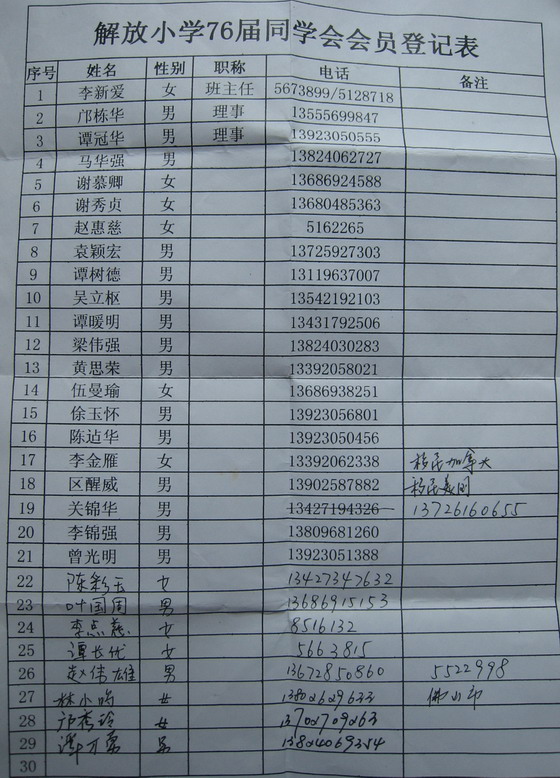 解放小学76届同学会会员登记表
序号 姓名 性别 职称 电话 备注
1 李新爱 女 班主任 5673899/5128718
2 邝栋华 男 理事 13555699847
3 谭冠华 男 理事 13923050555
4 马华强 男 13824062727
5 谢慕卿 女 13686924588
6 谢秀贞 女 13680485363
7 赵惠慈 女 5162265
8 袁颖宏 男 13725927303
9 谭树德 男 13119637007
10 吴立枢 男 13542192103
11 谭暖明 男 13431792506
12 梁伟强 男 13824030283
13 黄思荣 男 13392058021
14 伍曼瑜 女 13686938251
15 徐玉怀 男 13923056801
16 陈迠华 男 13923050456
17 李金雁 女 13392062338 移民加拿大
18 区醒威 男 13902587882 移民美国
19 关锦华 男 13427194326 13726160655
20 李锦强 男 13809681260
21 曾光明 男 13923051388
22 陈彩玉 女 13427347632
23 叶国周 男 13686915153
24 李点慈 女 8516132
25 谭长优 女 5663815
26 赵伟雄 男 13672850860 5522998
27 林小鸣 女 13802629633 佛山市
28 邝秀玲 女 13702709263
29 谭万 男 13824069354
30